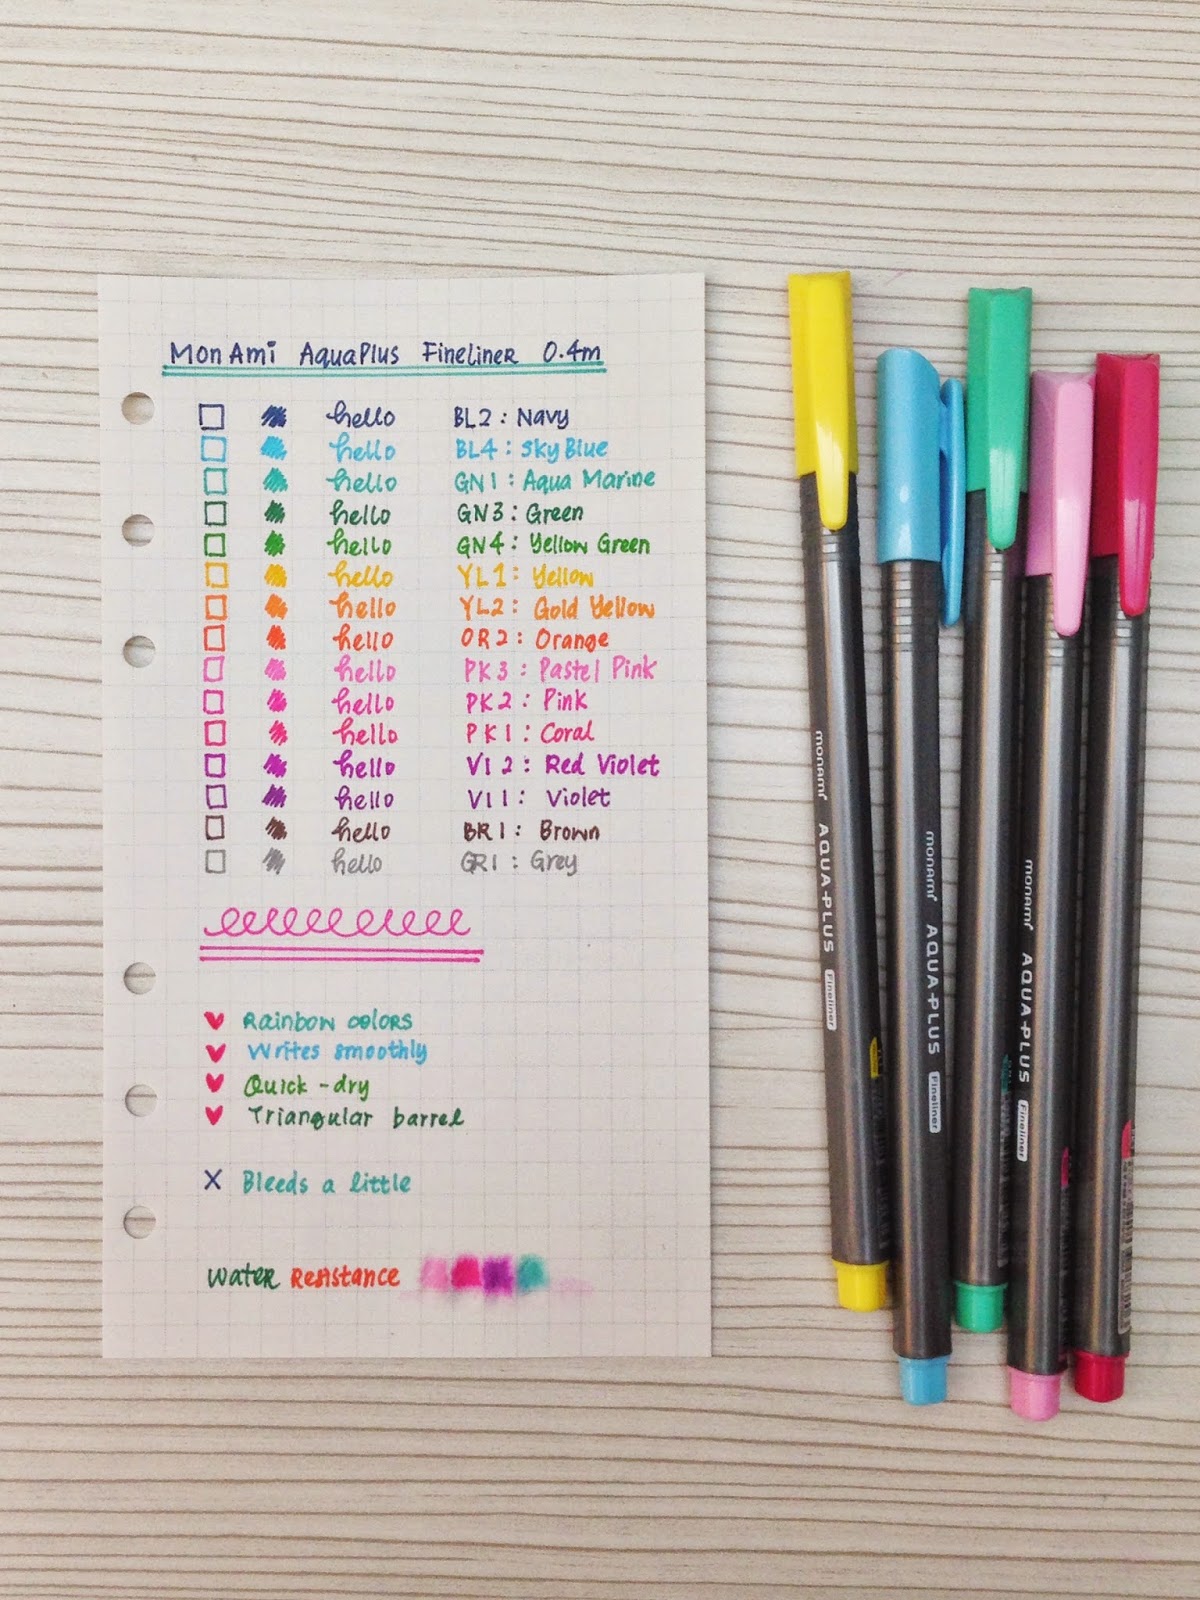 MonAmi AquaPlus Fineliner 0.4m
hello BL2: Navy
hello BL4: Sky Blue
hello GN1: Aqua Marine
hello GN3: Green
hello GN4: Yellow Green
hello YL1: Yellow
hello YL2: Gold Yellow
hello OR2: Orange
hello PK3: Pastel Pink
hello PK2: Pink
hello PK1: Coral
hello VI2: Red Violet
hello VI1: Violet
hello BR1: Brown
hello GR1: Grey
Rainbow colors
Writes smoothly
Quick-dry
Triangular barrel
X Bleeds a little
Water Resistance
monami AQUA-PLUS Fineliner
monami AQUA-PLUS Fineliner
monami AQUA-PLUS Fineliner